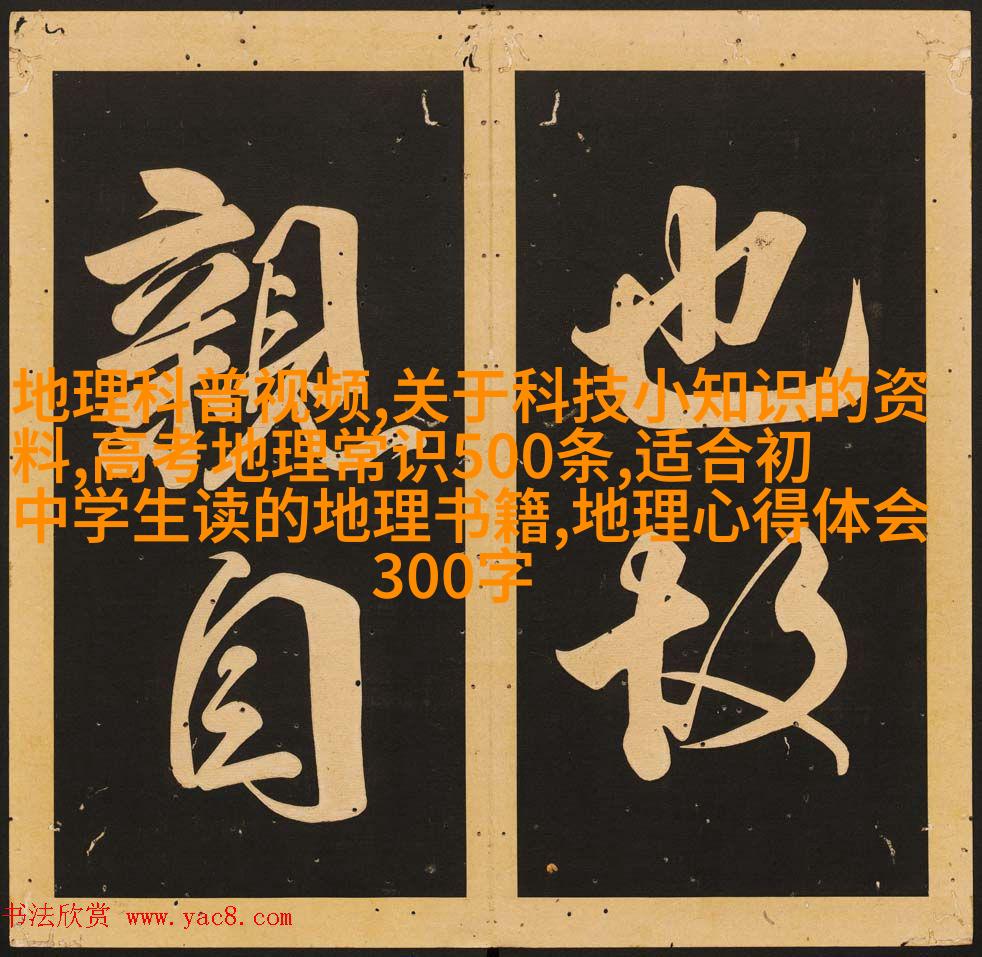 也
故
親
自
地理科普视频,关于科技小知识的资
料,高考地理常识500条,适合初
中学生读的地理书籍,地理心得体会
300字
书法欣赏 www.yac8.com